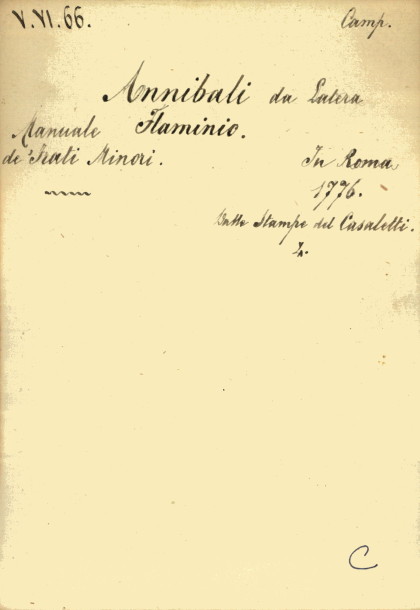 V. VI. 66. Camp.
Annibali da Latera
Manuale Flaminio.
de' Frati Minori. In Roma
1776.
Dalle Stampe del Casaletti.
C